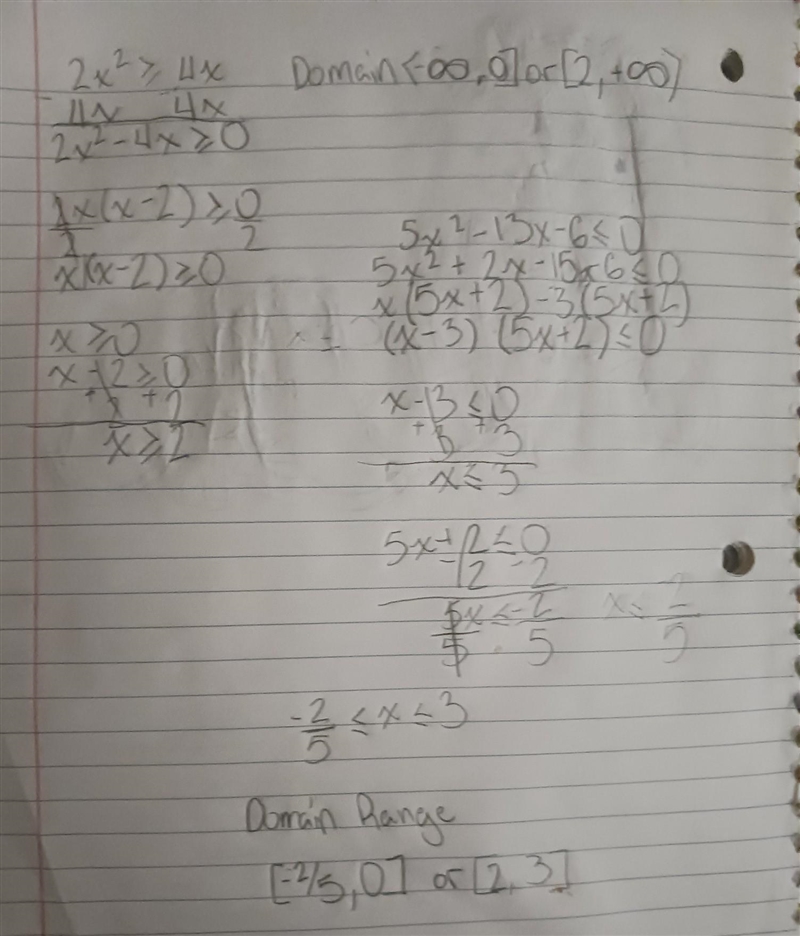 2x² ≥ 4x
-4x -4x
2x²-4x ≥ 0
2x(x-2) ≥ 0
2 2
x(x-2) ≥ 0
x ≥ 0
x-2 ≥ 0
+2 +2
x ≥ 2
Domain (-∞, 0] or [2, +∞)
5x²-13x-6 ≤ 0
5x² + 2x-15x-6 ≤ 0
x(5x+2)-3(5x+2)
(x-3) (5x+2) ≤ 0
x-3 ≤ 0
+3 +3
x ≤ 3
5x+2 ≤ 0
-2 -2
5x ≤ -2
5 5
-2/5 ≤ x ≤ 3
Domain Range
[-2/5, 0] or [2, 3]